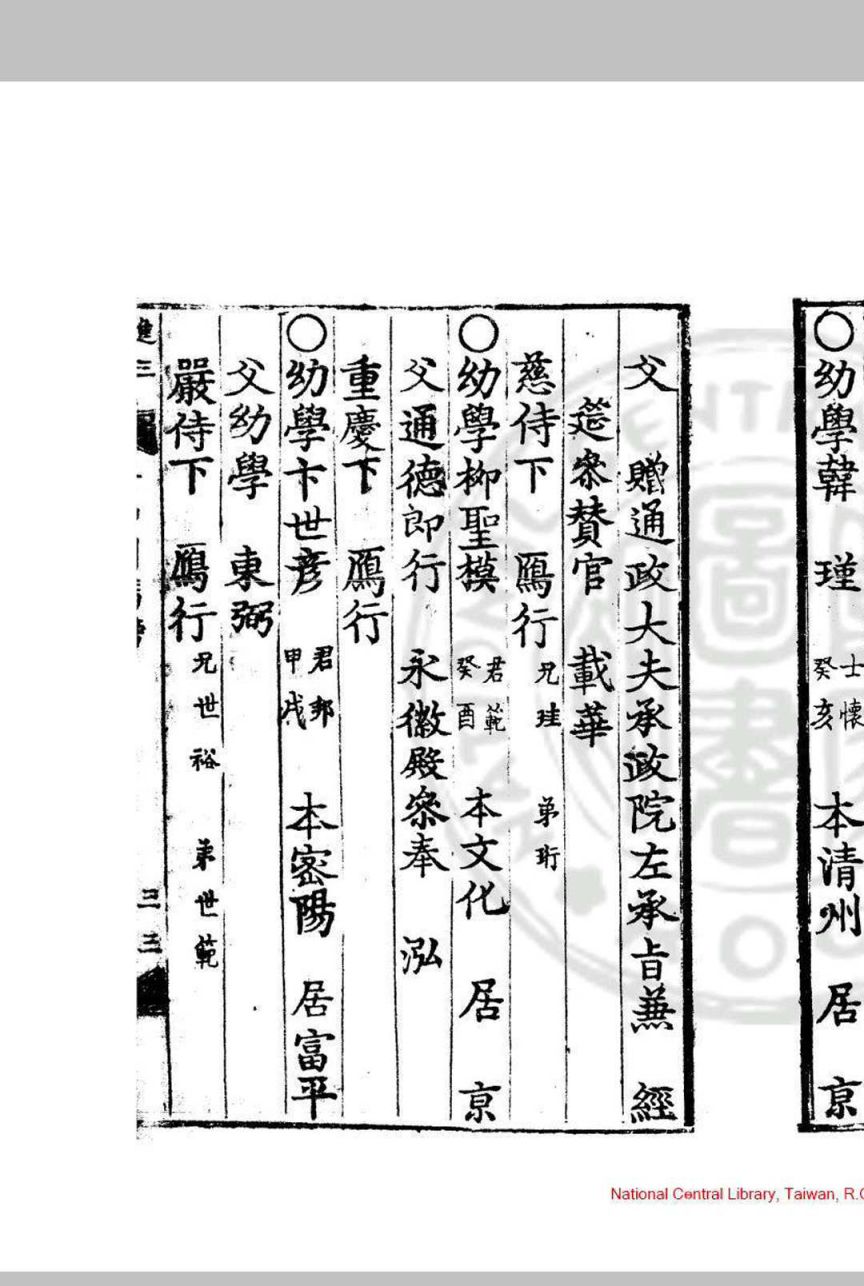 ○幼學韓 瑾 士懷 癸亥 本清州 居 京
父 贈通政大夫承政院左承旨兼 經
筵叅賛官 載華
慈侍下 鴈行 兄珪 弟珩
○幼學柳聖模 君範 癸酉 本文化 居 京
父通德郎行 永徽殿叅奉 泓
重慶下 鴈行
○幼學卞世彦 君邦 甲戌 本密陽 居富平
父幼學 東弼
嚴侍下 鴈行 兄世裕 弟世範
進三
三三
National Central Library, Taiwan, R.